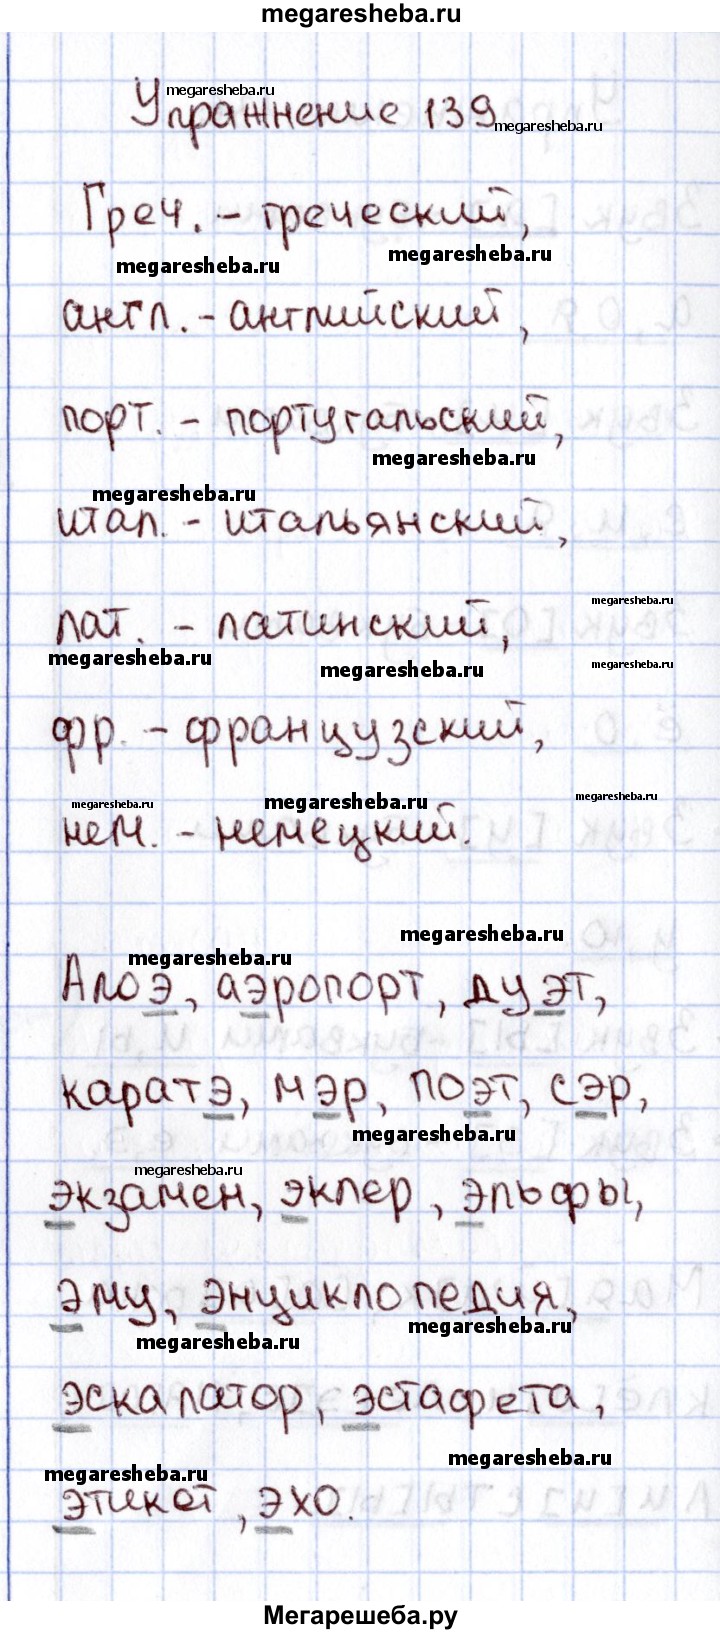 megaresheba.ru
megaresheba.ru
Упражнение 139
megaresheba.ru
Греч. - греческий,
megaresheba.ru
megaresheba.ru
англ. - английский,
порт. - португальский,
megaresheba.ru
megaresheba.ru
итал. - итальянский,
megaresheba.ru
лат. - латинский,
megaresheba.ru
megaresheba.ru
megaresheba.ru
фр. - французский,
megaresheba.ru
megaresheba.ru
megaresheba.ru
нем. - немецкий.
megaresheba.ru
megaresheba.ru
Алоэ, аэропорт, дуэт,
каратэ, мэр, поэт, сэр,
megaresheba.ru
megaresheba.ru
экзамен, эклер, эльфы,
эму, энциклопедия,
megaresheba.ru
megaresheba.ru
эскалатор, эстафета,
megaresheba.ru
megaresheba.ru
этикет, эхо.
Мегарешеба.ру